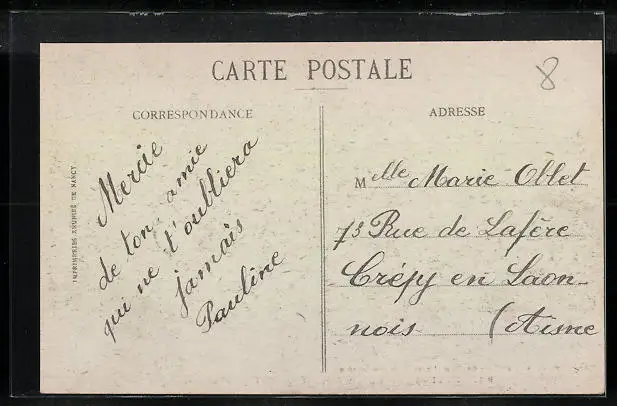 CARTE POSTALE
8
CORRESPONDANCE
Mercie
de ton amie
qui ne t'oubliera
jamais
Pauline
IMPRIMERIES RÉUNIES DE NANCY
ADRESSE
Melle Marie Oblet
73 Rue de Lafère
Crépy en Laon-
nois (Aisne